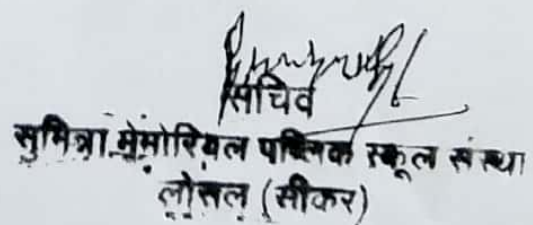 सचिव
सुमित्रा मेमोरियल पब्लिक स्कूल संस्था
लोसल (सीकर)